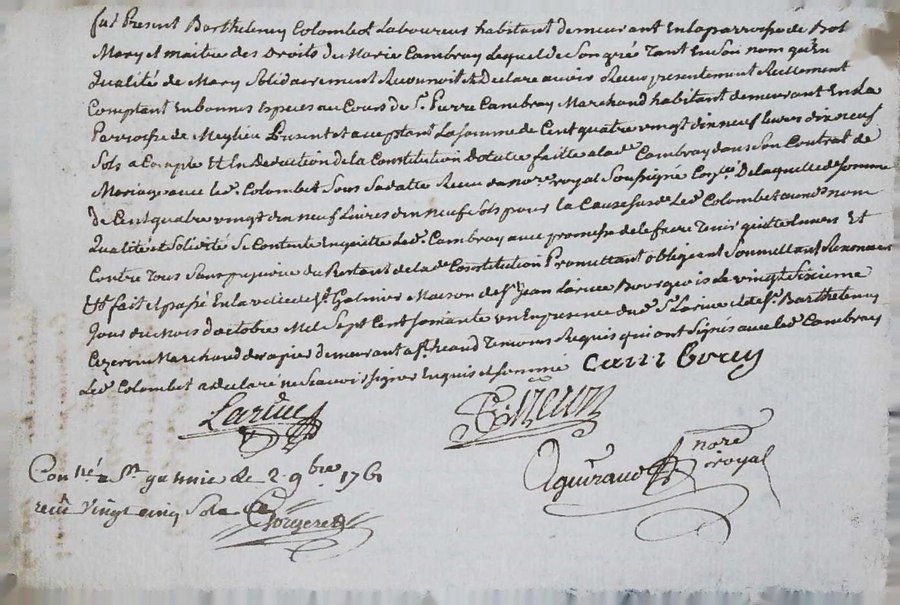 fut Present Barthelemy Colombet Laboureur habitant demeurant En la parroisse de Bot
Mary et maitre des Droits du Marie Cambray Lequel de Son gré Tant En Son nom qu'En
qualité de Mary Solidairement Reconnoit & Declare avoir Receu presentement Reellement
Comptant En bonnes Especes au Cours de Sr. Pierre Cambray Marchand habitant demeurant En La
Parroisse de Meylieu Present et acceptant La Somme de Cent quatre vingt dix neuf Livres dix neuf
Sols a Compte Et En Deduction de la Constitution Dotalle faitte a lade. Cambray dans Son Contrat de
Mariage avec led. Colombet Sous Sa datte Receu du nore. royal Soussigné De laquelle de. Somme
De Cent quatre vingt dix neuf Livres dix neuf Sols pour la Cause Susde. Led. Colombet aund. nom
qualité et Solidité Se Contente En quitte led. Cambray avec promesse de le faire Tenir quitte Envers Et
Contre Tous Sans prejudice du Restant de lade. Constitution Promettant obligeant Soumettant Renonceant
fait et passé En la ville de St. Galmier Maison de Sr. Jean Larue Bourgeois Le vingt Sixieme
Jour du Mois d'octobre Mil Sept Cent Soixante un En presence dud. Sr. Larue et de Sr. Barthelemy
Marchand drapier demeurant a St. Temoins Requis qui ont Signés avec led. Cambray
Led. Colombet a declaré ne Scavoir Signer Enquis et Sommé Cambray
Larue
Aguiraud nore royal
Conné. a St. gamie le 2. 9bre 1761
receu vingt cinq Sols